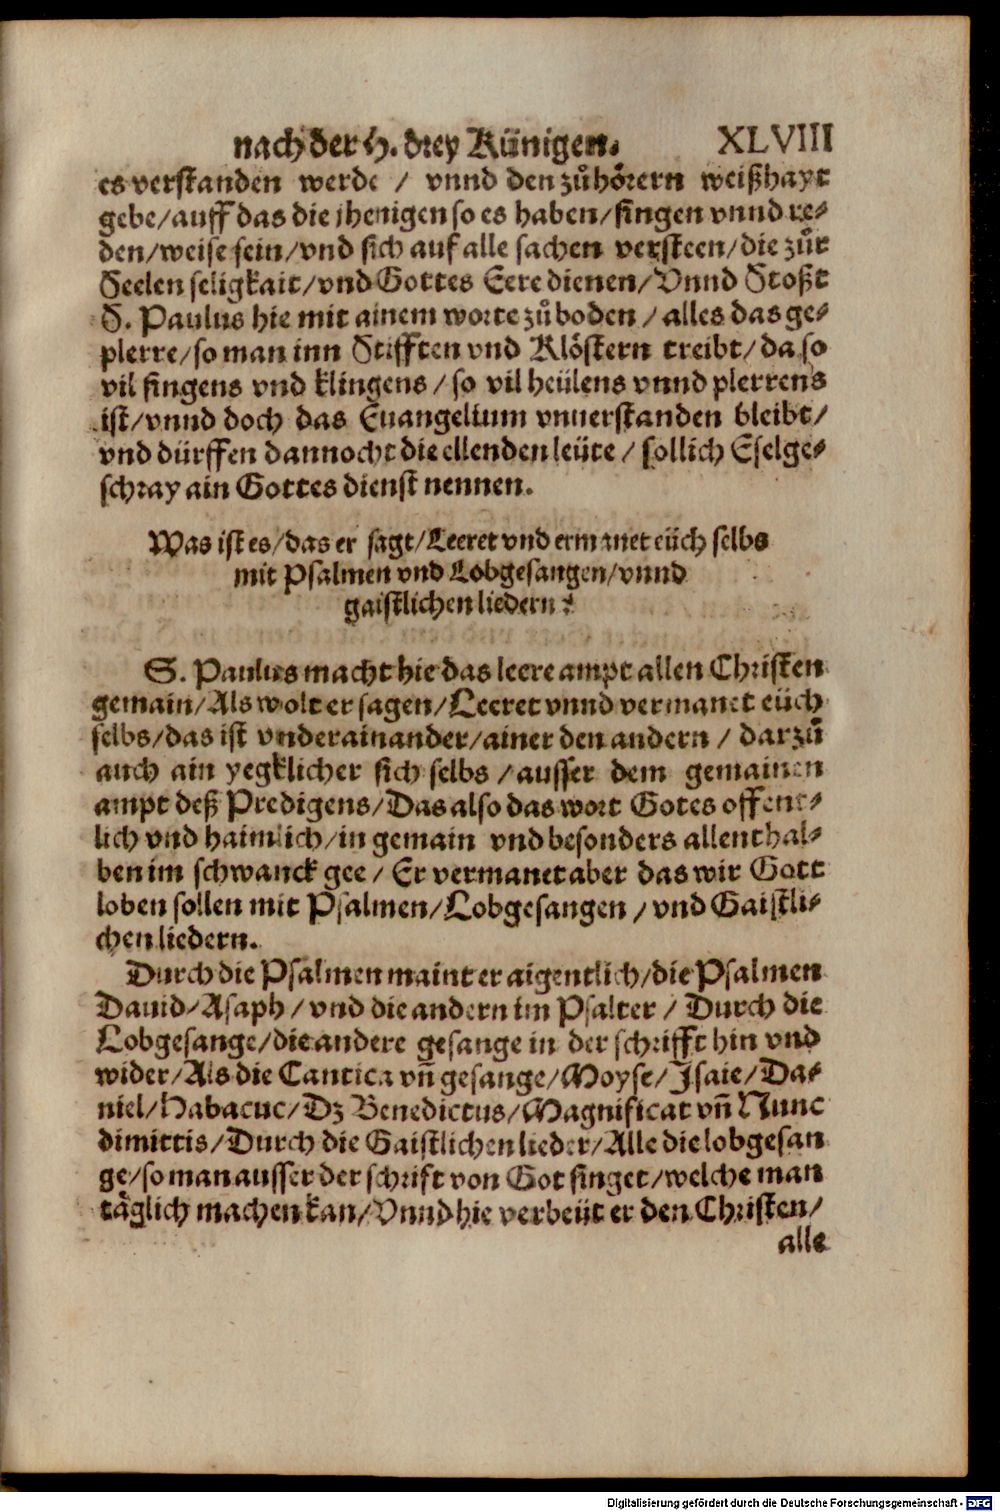 nach der H. drey Künigen. XLVIII
es verstanden werde / vnnd den zůhörern weißhayt
gebe/auff das die jhenigen so es haben/singen vnnd re⸗
den/weise sein/vnd sich auf alle sachen versteen/die zůr
Seelen seligkait/vnd Gottes Eere dienen/Vnnd Stoßt
S. Paulus hie mit ainem worte zů boden / alles das ge⸗
plerre/so man inn Stifften vnd Klöstern treibt/da so
vil singens vnd klingens/so vil heülens vnnd plerrens
ist/vnnd doch das Euangelium vnuerstanden bleibt/
vnd dürffen dannocht die ellenden leüte / sollich Eselge⸗
schray ain Gottes dienst nennen.
Was ist es/das er sagt/Leeret vnd ermanet eüch selbs
mit Psalmen vnd Lobgesangen/vnnd
gaistlichen liedern?
S. Paulus macht hie das leere ampt allen Christen
gemain/Als wolt er sagen/Leeret vnnd vermanet eüch
selbs/das ist vnderainander/ainer den andern / darzů
auch ain yegklicher sich selbs /ausser dem gemainen
ampt deß Predigens/Das also das wort Gotes offent⸗
lich vnd haimlich/in gemain vnd besonders allenthal⸗
ben im schwanck gee/ Er vermanet aber das wir Gott
loben sollen mit Psalmen/Lobgesangen /vnd Gaistli⸗
chen liedern.
Durch die Psalmen maint er aigentlich/die Psalmen
Dauid/Asaph /vnd die andern im Psalter / Durch die
Lobgesange/die andere gesange in der schrifft hin vnd
wider/Als die Cantica vn̄ gesange/Moyse/Isaie/Da⸗
niel/Habacuc/Dz Benedictus/Magnificat vn̄ Nunc
dimittis/Durch die Gaistlichen lieder/Alle die lobgesan
ge/so man ausser der schrift von Got singet/welche man
täglich machen kan/Vnnd hie verbeüt er den Christen/
alle
Digitalisierung gefördert durch die Deutsche Forschungsgemeinschaft - DFG